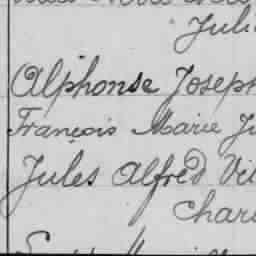 Juli
Alphonse Joseph
François Marie Ju
Jules Alfred Vi
Char